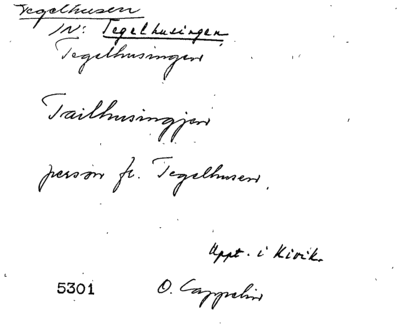 Tegelhusen
IN: Tegelhusingen
Tegelhusingen
Tailhusingjen
person fr. Tegelhusen.
Uppt. i Kivik.
5301 O. Cappelin